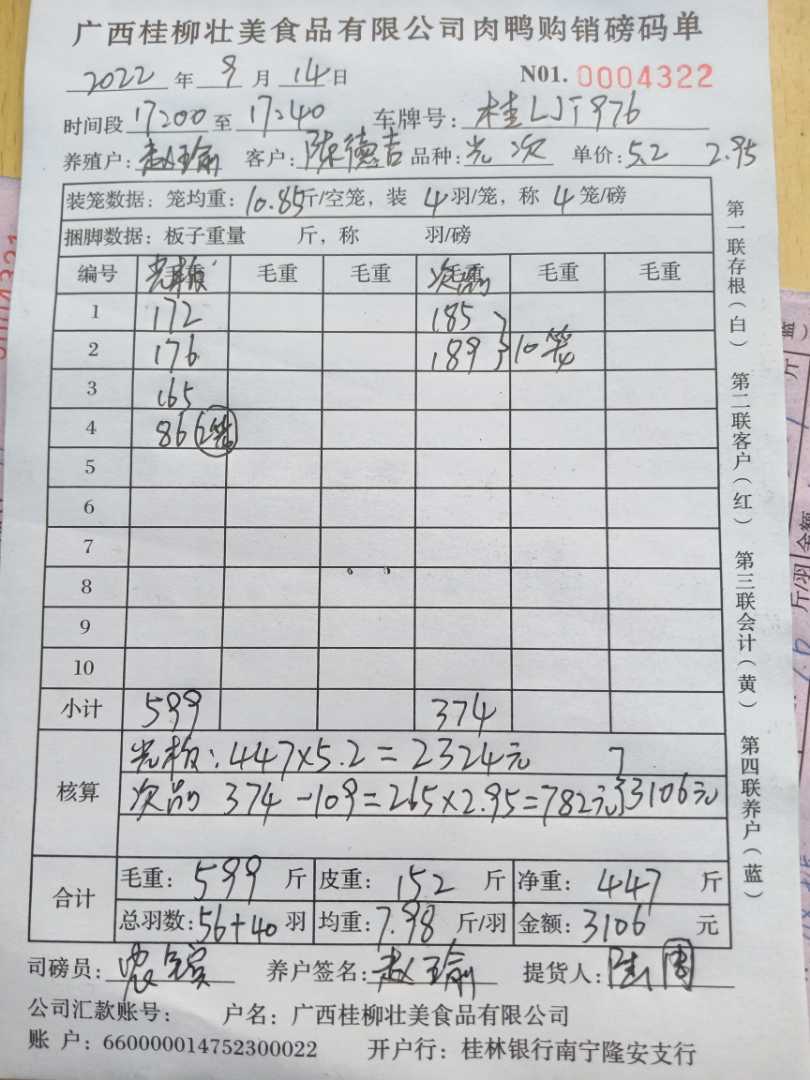 广西桂柳壮美食品有限公司肉鸭购销磅码单
2022 年 9 月 14 日 N01. 0004322
时间段 17:00 至 17:40 车牌号: 桂LJT976
养殖户: 赵玉瑜 客户: 陈德吉 品种: 光 次 单价: 5.2 2.95
装笼数据: 笼均重: 10.85 斤/空笼, 装 4 羽/笼, 称 4 笼/磅
捆脚数据: 板子重量 斤, 称 羽/磅
编号 光板 毛重 毛重 次品 毛重 毛重
1 172 185
2 176 189 10笼
3 165
4 86 2笼
5
6
7
8
9
10
小计 599 374
核算
光板: 447×5.2=2324元
次品 374-109=265×2.95=782元 3106元
合计
毛重: 599 斤 皮重: 152 斤 净重: 447 斤
总羽数: 56+40 羽 均重: 7.98 斤/羽 金额: 3106 元
司磅员: 养户签名: 赵玉瑜 提货人:
公司汇款账号: 户名: 广西桂柳壮美食品有限公司
账 户: 660000014752300022 开户行: 桂林银行南宁隆安支行
第一联存根(白) 第二联客户(红) 第三联会计(黄) 第四联养户(蓝)